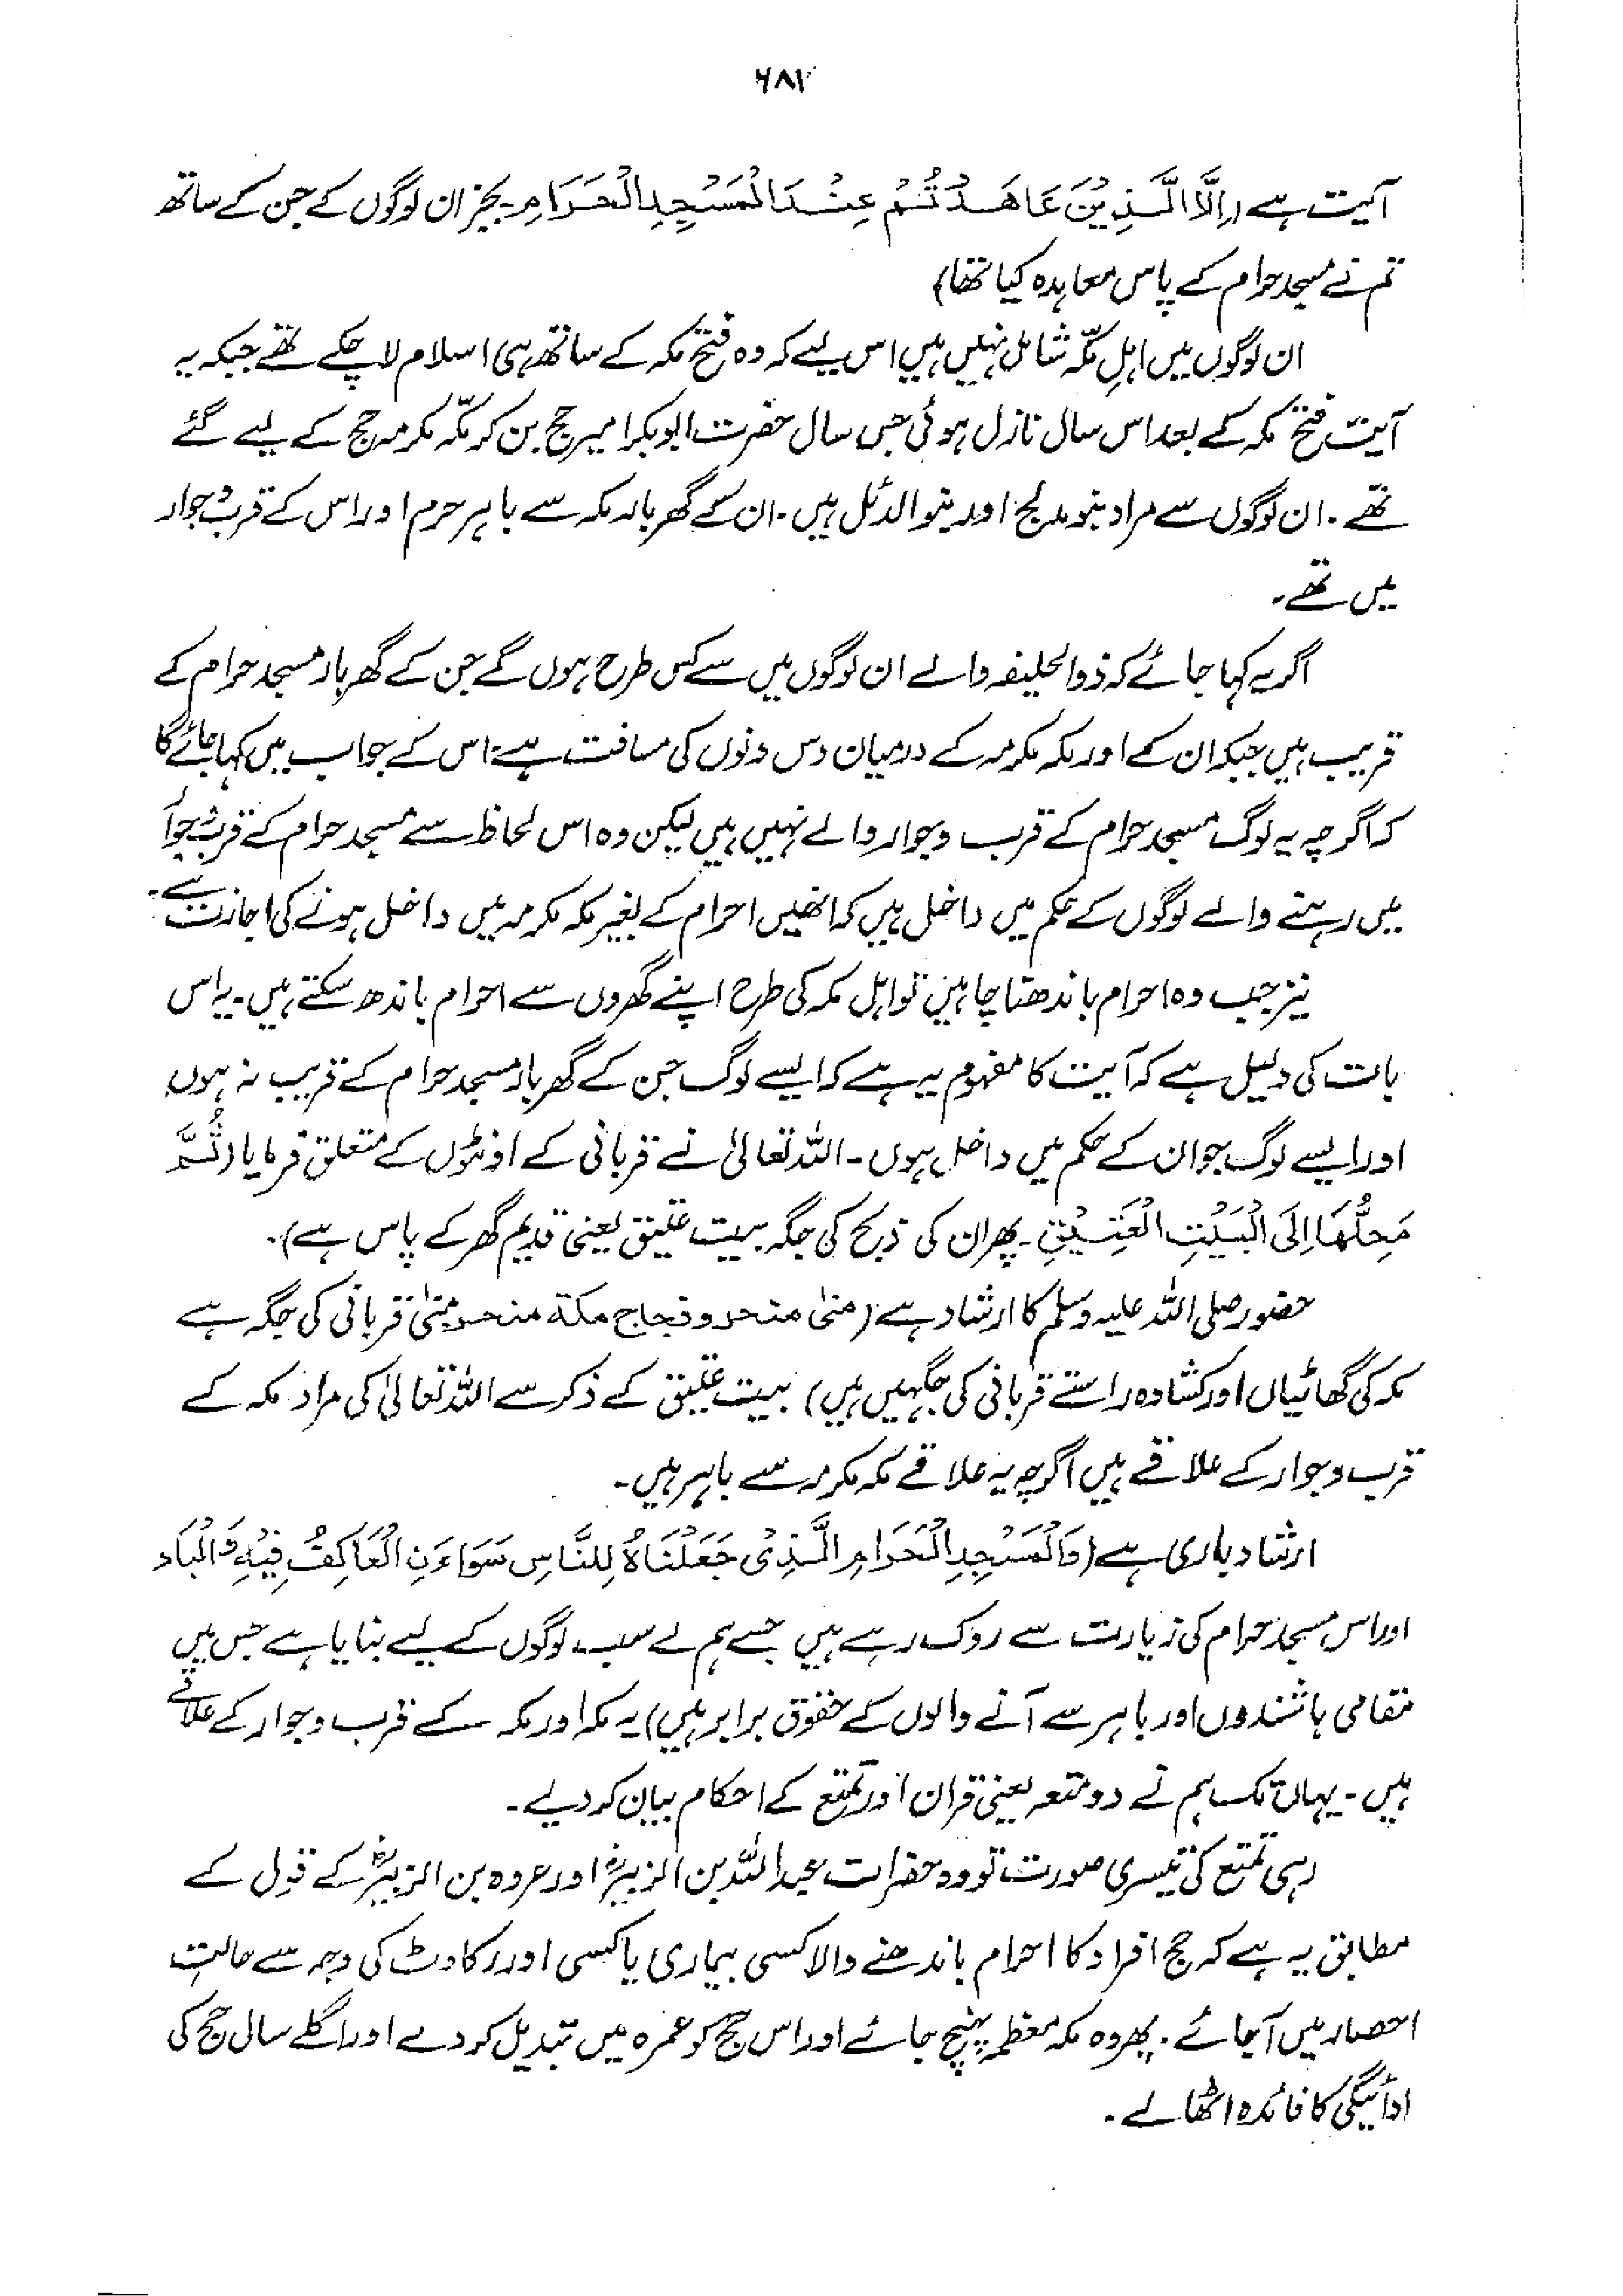 ۶۸۲
آیت ہے (اِلَّا الَّذِیْنَ عَاھَدْتُّمْ عِنْدَ الْمَسْجِدِ الْحَرَامِ۔ بجز ان لوگوں کے جن کے ساتھ
تم نے مسجد حرام کے پاس معاہدہ کیا تھا)
ان لوگوں میں اہلِ مکّہ شامل نہیں ہیں اس لیے کہ وہ فتح مکہ کے ساتھ ہی اسلام لا چکے تھے جبکہ یہ
آیت فتح مکہ کے بعد اس سال نازل ہوئی جس سال حضرت ابوبکر امیر حج بن کر مکّہ مکرمہ حج کے لیے گئے
تھے۔ ان لوگوں سے مراد بنو مدلج اور بنو الدئل ہیں۔ ان کے گھر بار مکہ سے باہر حرم اور اس کے قرب و جوار
میں تھے۔
اگر یہ کہا جائے کہ ذوالحلیفہ والے ان لوگوں میں سے کس طرح ہوں گے جن کے گھر بار مسجد حرام کے
قریب ہیں جبکہ ان کے اور مکہ مکرمہ کے درمیان دس دنوں کی مسافت ہے؟ اس کے جواب میں کہا جائے گا
کہ اگرچہ یہ لوگ مسجد حرام کے قرب و جوار والے نہیں ہیں لیکن وہ اس لحاظ سے مسجد حرام کے قرب و جوار
میں رہنے والے لوگوں کے حکم میں داخل ہیں کہ انھیں احرام کے بغیر مکہ مکرمہ میں داخل ہونے کی اجازت ہے۔
نیز جب وہ احرام باندھنا چاہیں تو اہل مکہ کی طرح اپنے گھروں سے احرام باندھ سکتے ہیں۔ یہ اس
بات کی دلیل ہے کہ آیت کا مفہوم یہ ہے کہ ایسے لوگ جن کے گھر بار مسجد حرام کے قریب نہ ہوں
اور ایسے لوگ جو ان کے حکم میں داخل ہوں۔ اللہ تعالیٰ نے قربانی کے اونٹوں کے متعلق فرمایا (ثُمَّ
مَحِلُّھَا اِلَی الْبَیْتِ الْعَتِیْقِ۔ پھر ان کی ذبح کی جگہ بیت عتیق یعنی قدیم گھر کے پاس ہے)۔
حضور صلی اللہ علیہ وسلم کا ارشاد ہے (منیٰ منحر و فجاج مکۃ منحر منیٰ قربانی کی جگہ ہے
مکہ کی گھاٹیاں اور کشادہ راستے قربانی کی جگہیں ہیں) بیت عتیق کے ذکر سے اللہ تعالیٰ کی مراد مکہ کے
قرب و جوار کے علاقے ہیں اگرچہ یہ علاقے مکہ مکرمہ سے باہر ہیں۔
ارشاد باری ہے (وَالْمَسْجِدِ الْحَرَامِ الَّذِیْ جَعَلْنَاہُ لِلنَّاسِ سَوَاءَنِ الْعَاکِفُ فِیْہِ وَالْبَاد
اور اس مسجد حرام کی زیارت سے روک رہے ہیں جسے ہم نے سب لوگوں کے لیے بنایا ہے جس میں
مقامی باشندوں اور باہر سے آنے والوں کے حقوق برابر ہیں) یہ مکہ اور مکہ کے قرب و جوار کے علاقے
ہیں۔ یہاں تک ہم نے دو متعہ یعنی قران اور تمتع کے احکام بیان کر دیے۔
رہی تمتع کی تیسری صورت تو وہ حضرات عبداللہ بن الزبیرؓ اور عروہ بن الزبیرؓ کے قول کے
مطابق یہ ہے کہ حج افراد کا احرام باندھنے والا کسی بیماری یا کسی اور رکاوٹ کی وجہ سے حالتِ
احصار میں آ جائے۔ پھر وہ مکہ معظمہ پہنچ جائے اور اس حج کو عمرہ میں تبدیل کر دے اور اگلے سال حج کی
ادائیگی کا فائدہ اٹھا لے۔